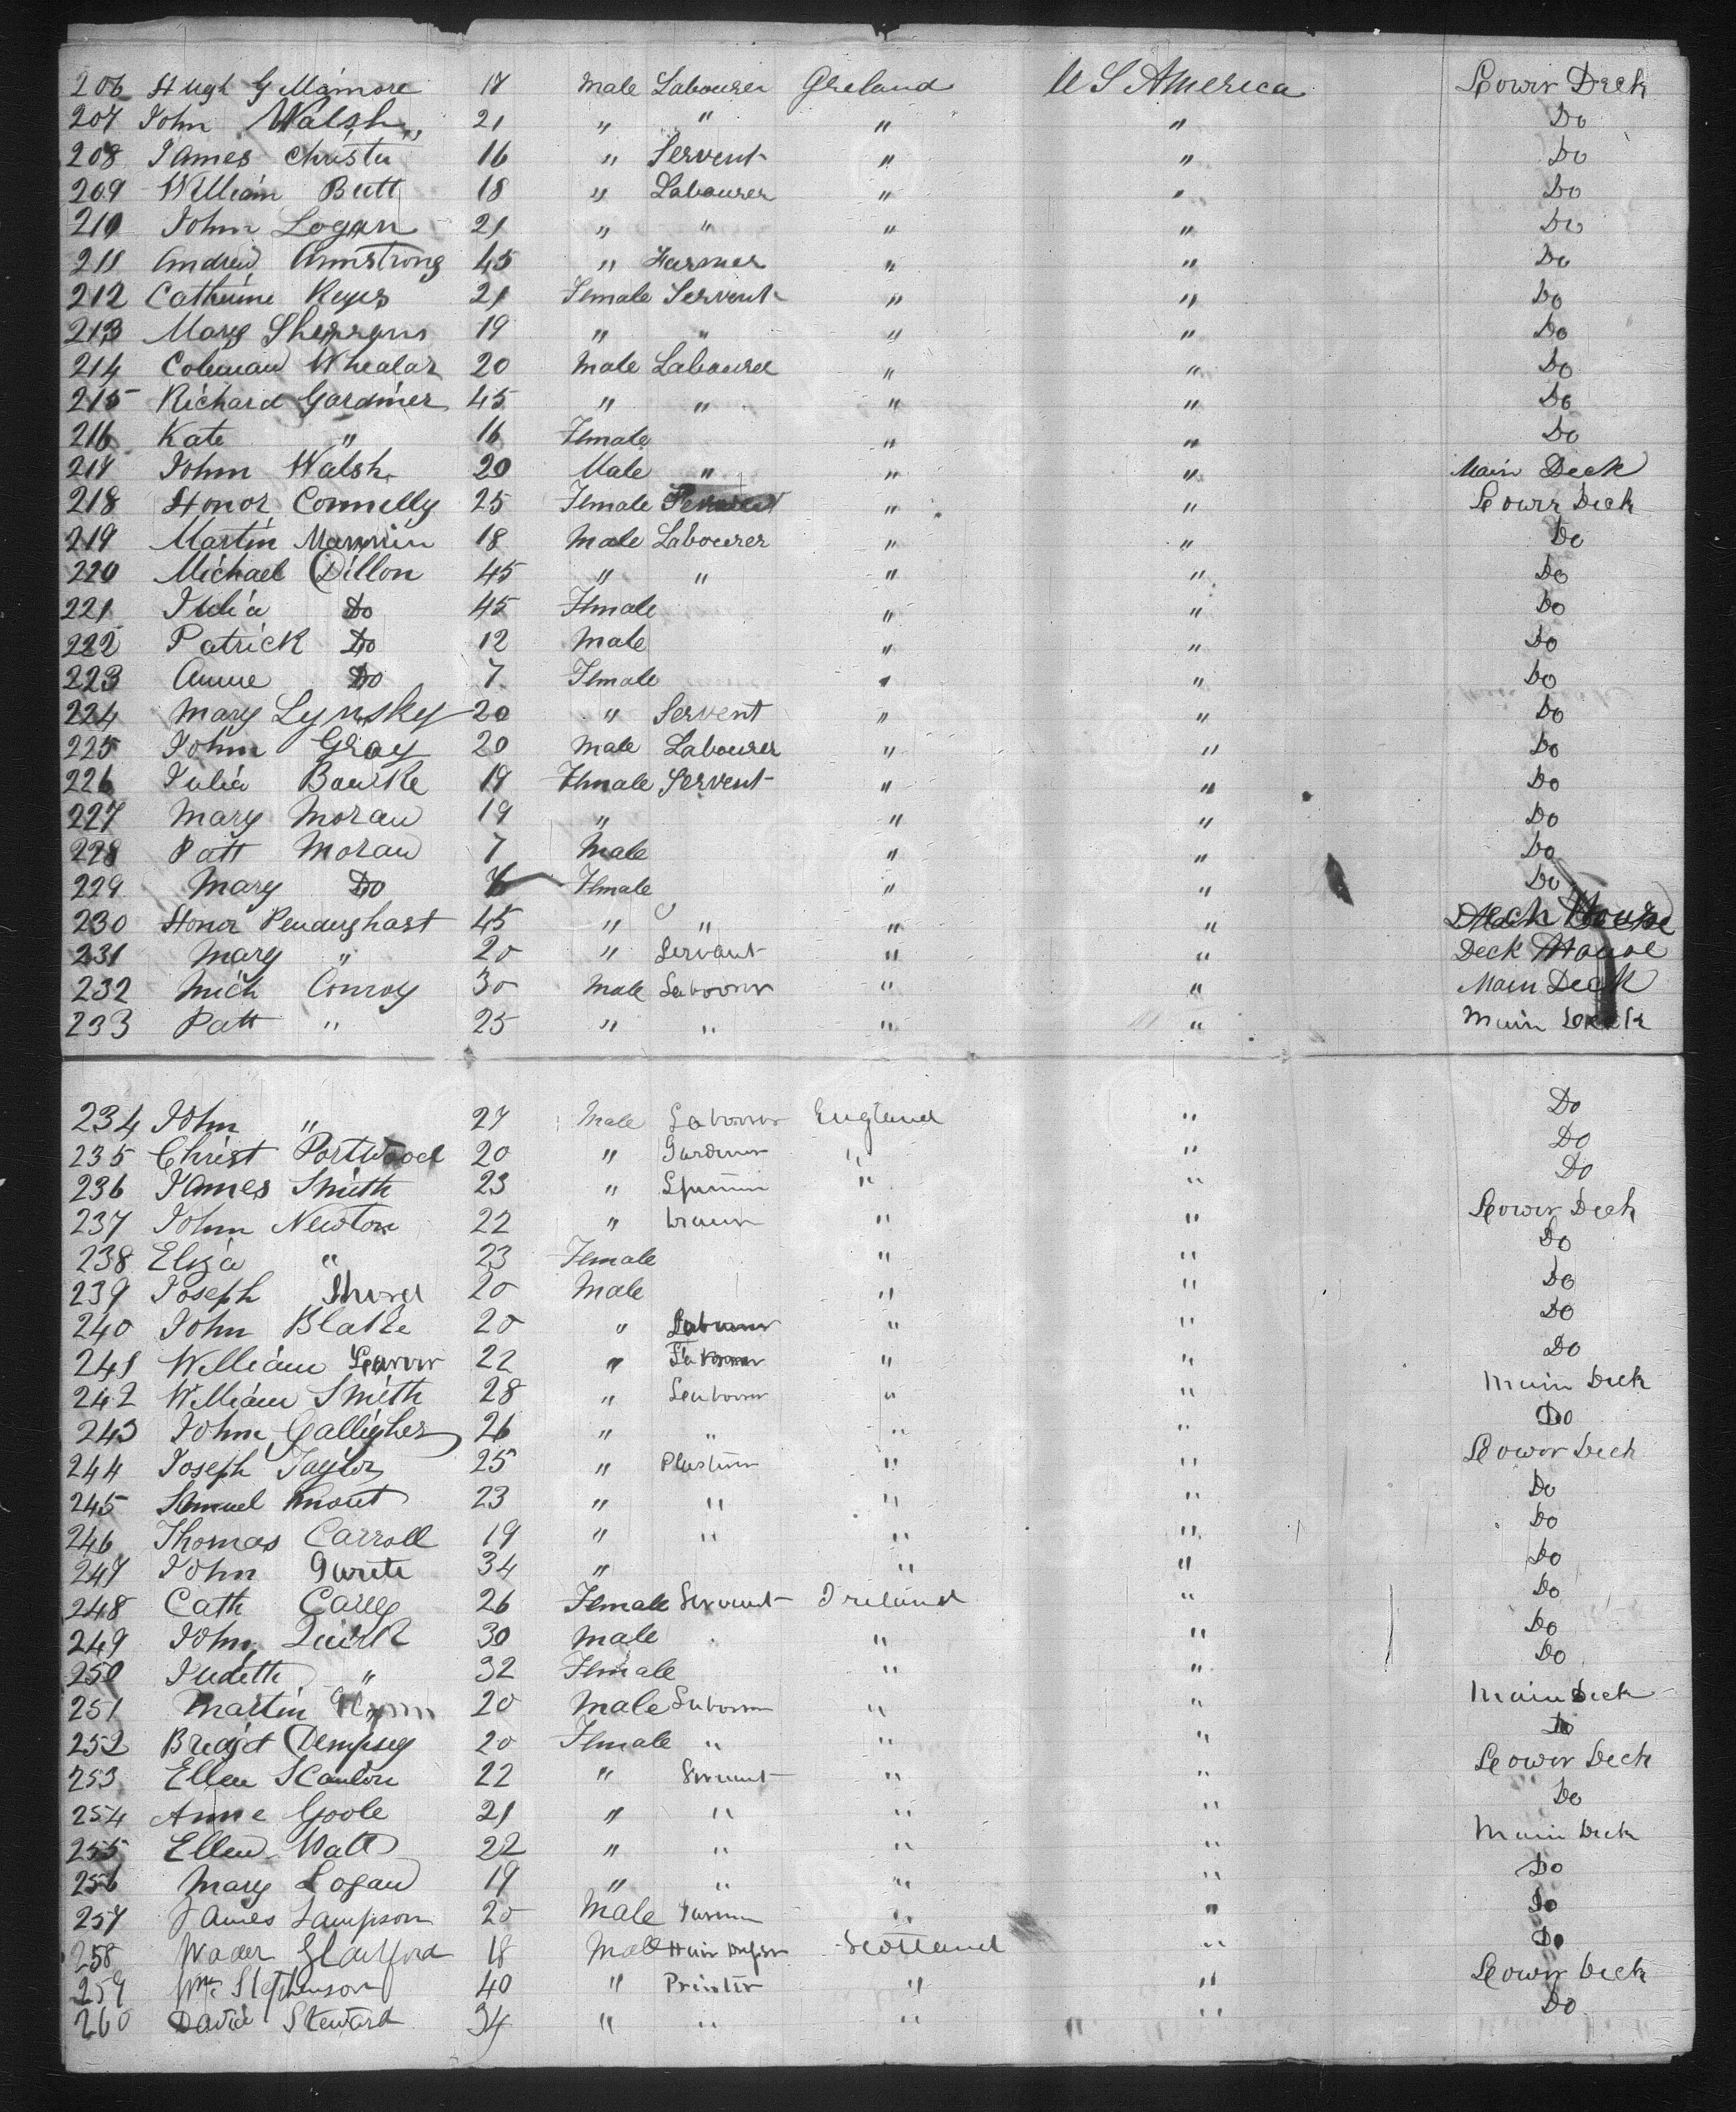 206 Hugh G Mamore 17 Male Labourer Ireland U S America Lower Deck
207 John Walsh 21 " " " " Do
208 James Christie 16 " Servent " " Do
209 William Butt 18 " Labourer " " Do
210 John Logan 21 " " " " Do
211 Andrew Armstrong 45 " Farmer " " Do
212 Catherine Keyes 21 Female Servent " " Do
213 Mary 19 " " " " Do
214 Coleman Whealar 20 Male Labourer " " Do
215 Richard Gardiner 45 " " " " Do
216 Kate " 16 Female " " Do
217 John Walsh 20 Male " " " Main Deck
218 Honor Connelly 25 Female " " Lower Deck
219 Martin Mannin 18 Male Labourer " " Do
220 Michael Dillon 45 " " " " Do
221 Julia Do 45 Female " " Do
222 Patrick Do 12 Male " " Do
223 Annie Do 7 Female " " Do
224 Mary Lynsky 20 " Servent " " Do
225 John Gray 20 Male Labourer " " Do
226 Julia Bourke 19 Female Servent " " Do
227 Mary Moran 19 " " " Do
228 Patt Moran 7 Male " " Do
229 Mary Do Female " " Do
230 Honor Penderghast 45 " " " " Deck House
231 Mary " 20 " Servant " " Deck House
232 Mich Conroy 30 Male Labourer " " Main Deck
233 Patt " 25 " " " " Main Deck
234 John " 27 Male Labourer England " Do
235 Christ Portwood 20 " Gardener " " Do
236 James Smith 23 " " " Do
237 John Newton 22 " " " Lower Deck
238 Eliza " 23 Female " " Do
239 Joseph 20 Male " " Do
240 John Blake 20 " Labourer " " Do
241 William 22 " " " Do
242 William Smith 28 " Labourer " " Main Deck
243 John Galligher 26 " " " " Do
244 Joseph Taylor 25 " Plasterer " " Lower Deck
245 Samuel 23 " " " " Do
246 Thomas Carroll 19 " " " " Do
247 John 34 " " " Do
248 Cath Carey 26 Female Servant Ireland " Do
249 John Quirk 30 Male " " Do
250 Judith " 32 Female " " Do
251 Martin 20 Male Labourer " " Main Deck
252 Bridget Dempsey 20 Female " " " Do
253 Ellen Scanlon 22 " Servant " " Lower Deck
254 Anne Goole 21 " " " " Do
255 Ellen Watt 22 " " " " Main Deck
256 Mary Logan 19 " " " " Do
257 James Sampson 20 Male Farmer " " Do
258 18 Male Hair Dresser Scotland " Do
259 Wm Stephenson 40 " Printer " " Lower Deck
260 David Steward 34 " " " " Do